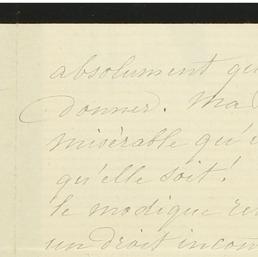 absolument qu
donner. Ma
misérable qu'
qu'elle soit!
le modique re
un droit incon